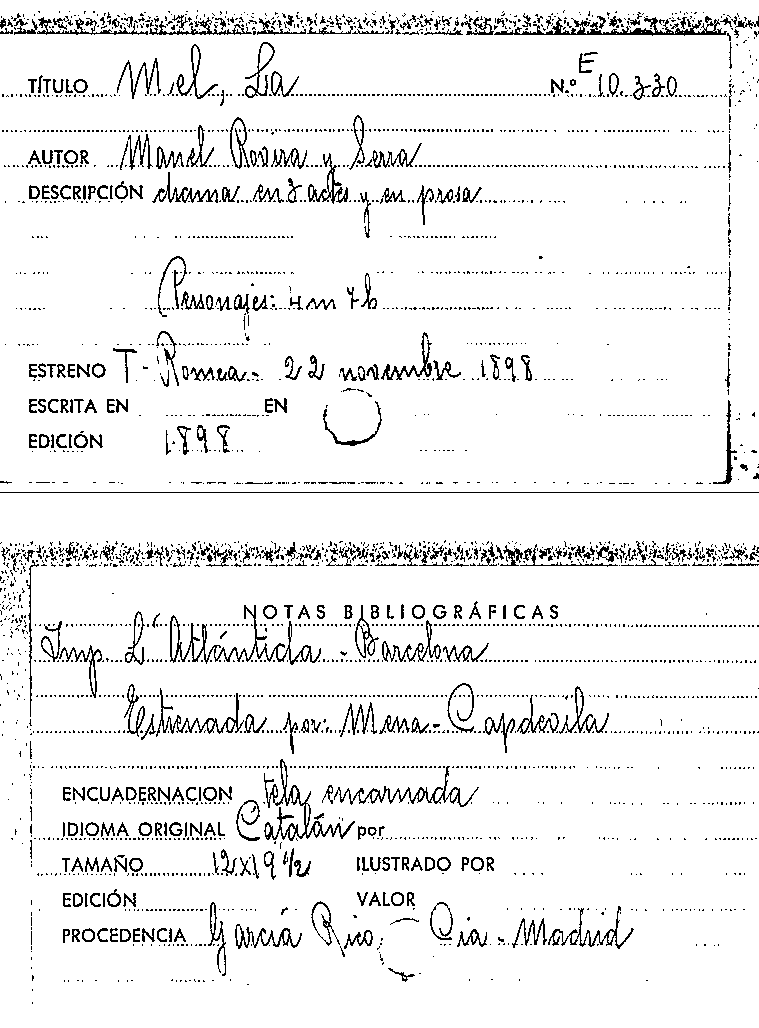 TÍTULO Mel, La N.º E 10.330
AUTOR Manel Rovira y Serra
DESCRIPCIÓN drama en 3 actes y en prosa
Personajes: 4m 7h
ESTRENO T. Romea - 22 novembre 1898
ESCRITA EN EN
EDICIÓN 1898
NOTAS BIBLIOGRÁFICAS
Imp. L'Atlántida - Barcelona
Estrenada por: Mena-Capdevila
ENCUADERNACION tela encarnada
IDIOMA ORIGINAL Catalán por
TAMAÑO 12x19 1/2 ILUSTRADO POR
EDICIÓN VALOR
PROCEDENCIA García Rico, Cia - Madrid